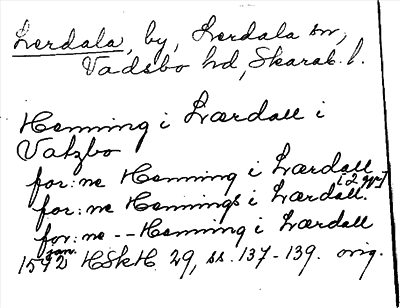 Lerdala, by, Lerdala sn,
Vadsbo hd, Skarab. l.
Henning i Lærdall i
Vatzbo
for:ne Henning i Lærdall [2 ggr]
for:ne Hennings i Lærdall.
for:ne -- Henning i Lærdall
1592 jan. HSkH 29, ss. 137-139. orig.